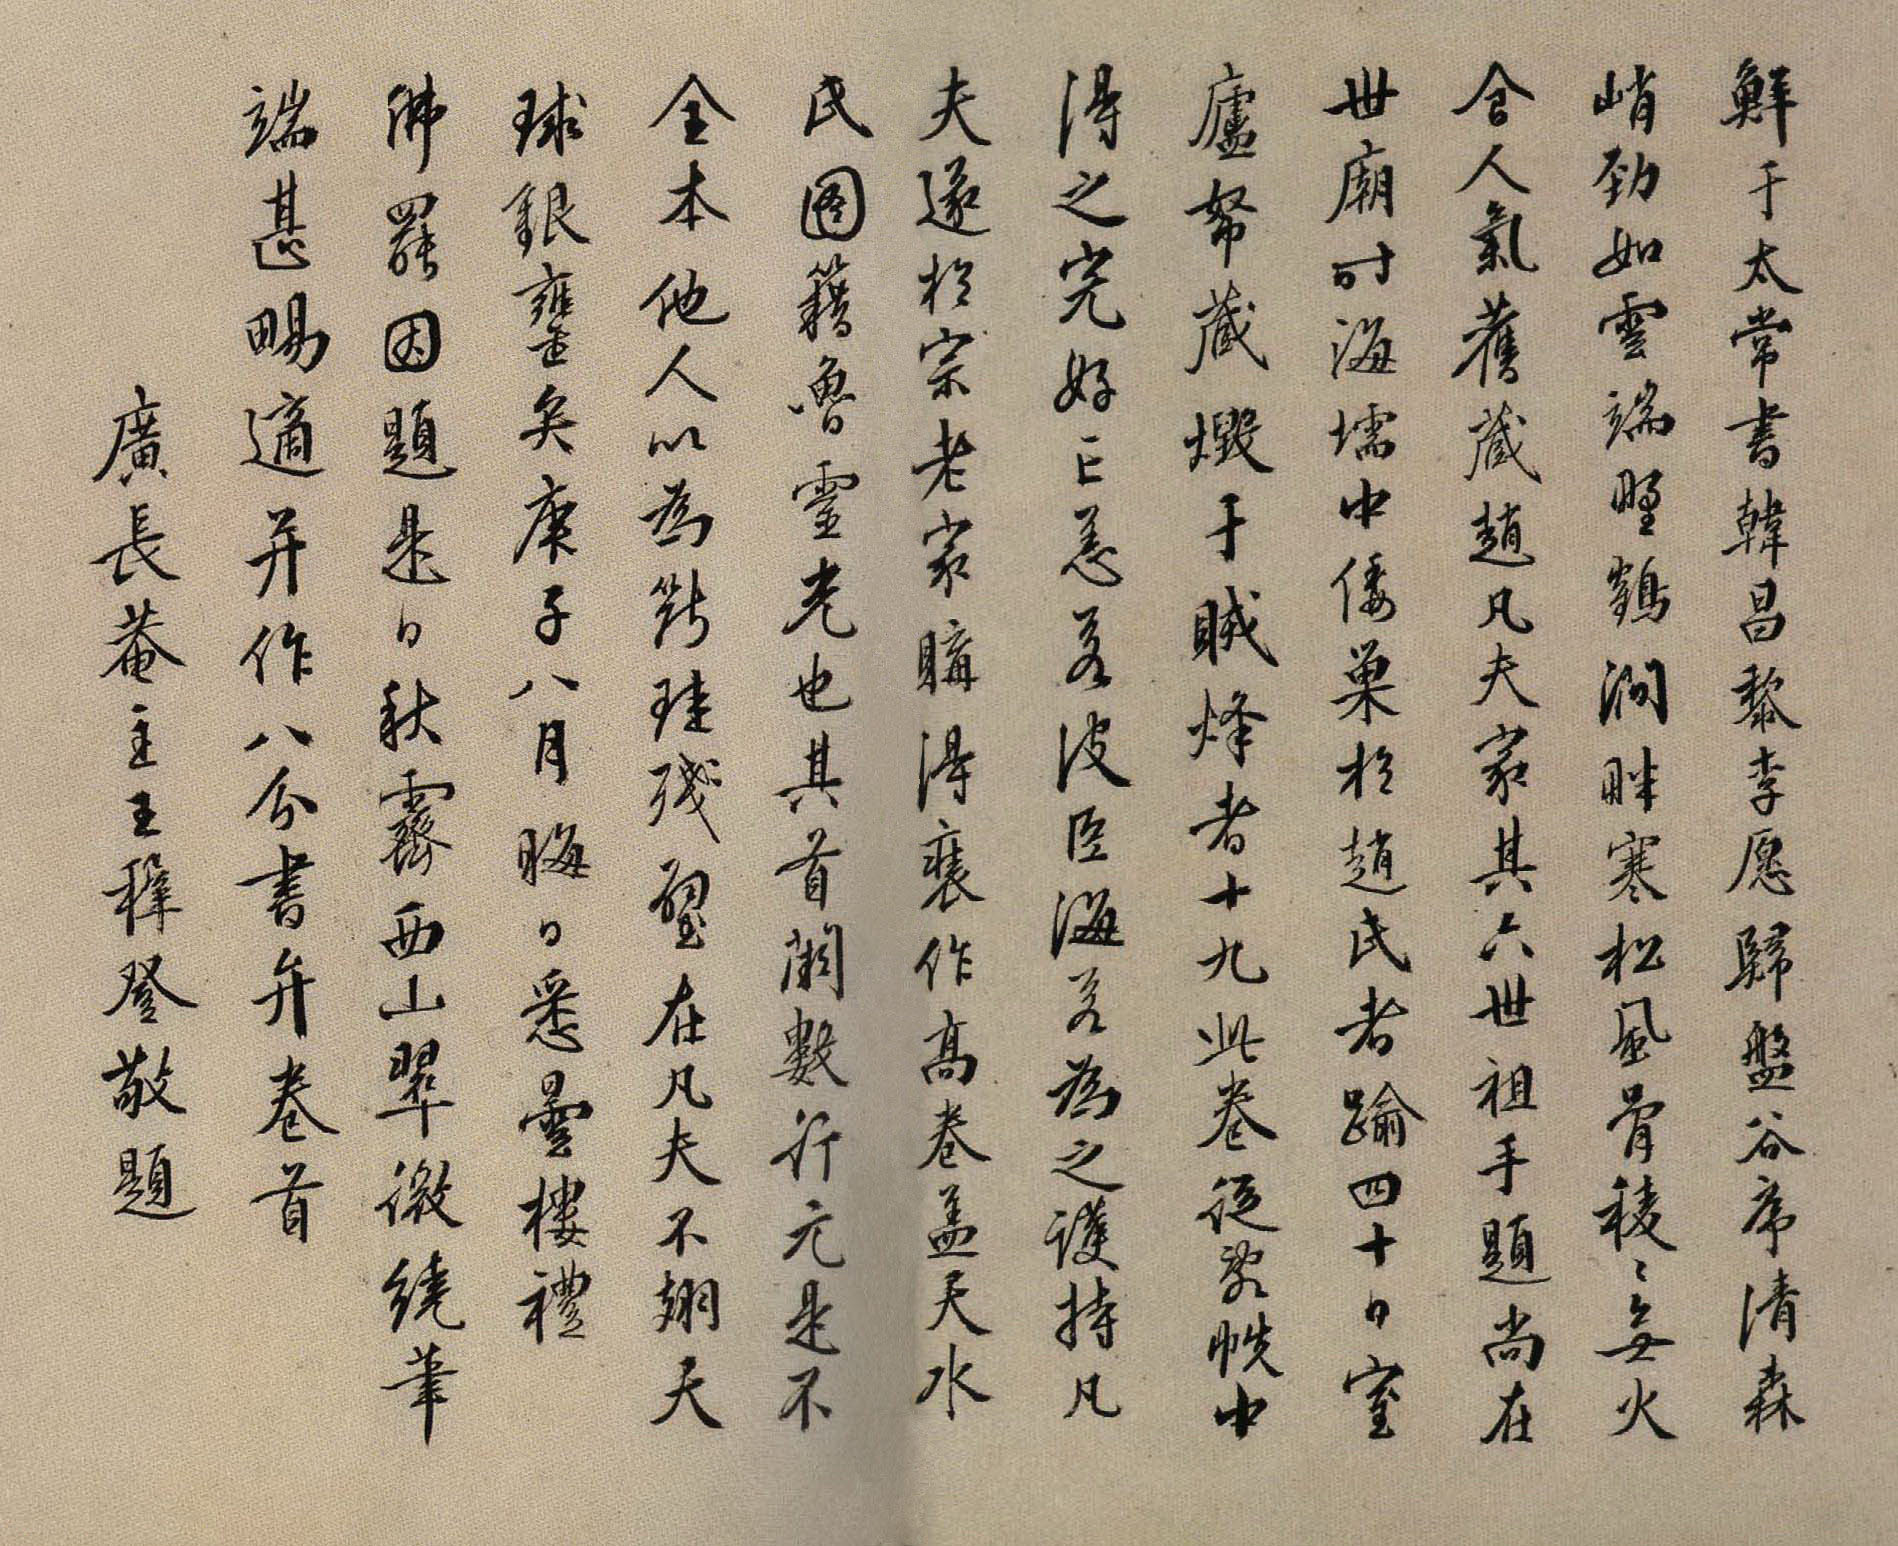 鮮于太常書韓昌黎李愿歸盤谷序清森
峭勁如雲端野鶴澗畔寒松風骨稜〻無火
食人氣舊藏趙凡夫家其六世祖手題尚在
世廟时海壖中倭巢於趙氏者踰四十日室
廬帑藏燬于賊烽者十九此卷從敗帙中
得之完好亡恙若波臣海若為之護持凡
夫遂於宗老家購得裝作高卷盖天水
氏圖籍魯靈光也其首闕數行元是不
全本他人以為斷珪殘璧在凡夫不翅天
球銀甕矣庚子八月晦日悉曇樓禮
佛罷因題是日秋霽西山翠微繞筆
端甚暢適并作八分書弁卷首
廣長菴主王穉登敬題